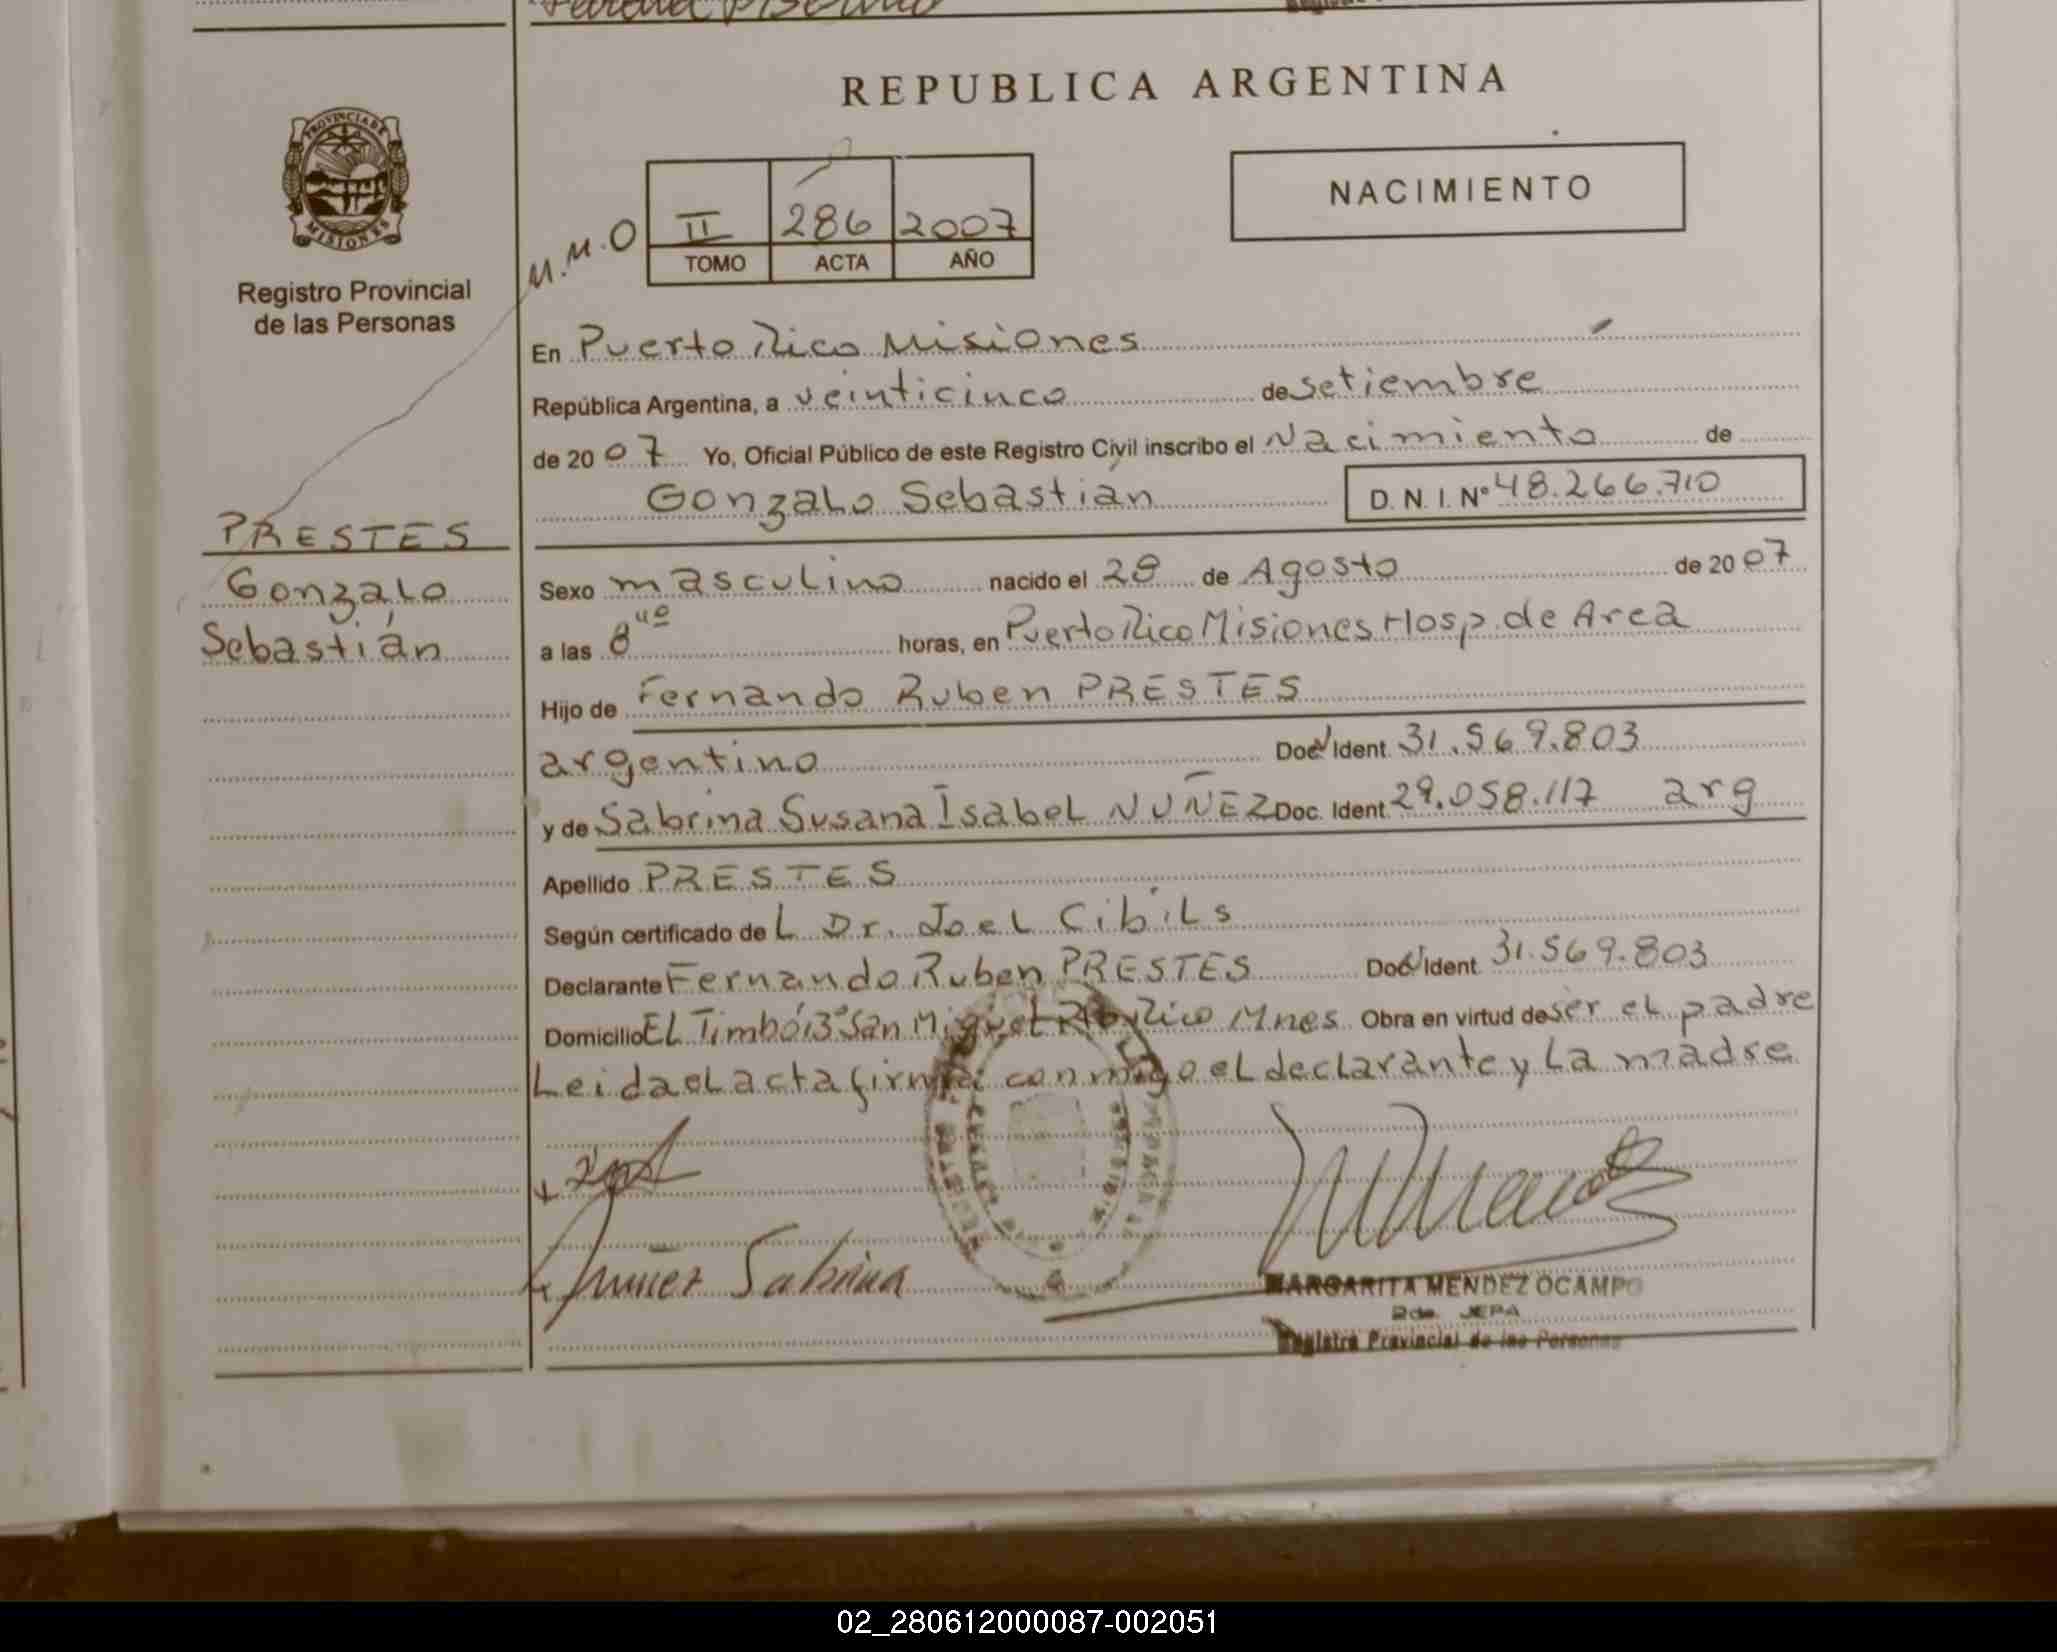 REPUBLICA ARGENTINA
PROVINCIA DE
MISIONES
Registro Provincial
de las Personas
M.M.O
II 286 2007
TOMO ACTA AÑO
NACIMIENTO
En Puerto Rico Misiones
República Argentina, a veinticinco de setiembre
de 2007 Yo, Oficial Público de este Registro Civil inscribo el Nacimiento de
Gonzalo Sebastián D. N. I. Nº 48.266.710
PRESTES
Gonzalo
Sebastián
Sexo masculino nacido el 28 de Agosto de 2007
a las 8 40 horas, en Puerto Rico Misiones Hosp. de Area
Hijo de Fernando Ruben PRESTES
argentino Doc. Ident. 31.569.803
y de Sabrina Susana Isabel NUÑEZ Doc. Ident. 29.058.117 arg
Apellido PRESTES
Según certificado de L Dr. Joel Cibils
Declarante Fernando Ruben PRESTES Doc. Ident. 31.569.803
Domicilio EL Timbó San Miguel Rico Mnes Obra en virtud de ser el padre
Leida el acta firma conmigo el declarante y La madre
Nuñez Sabrina
MARGARITA MENDEZ OCAMPO
JEFA
Registro Provincial de las Personas
02_280612000087-002051